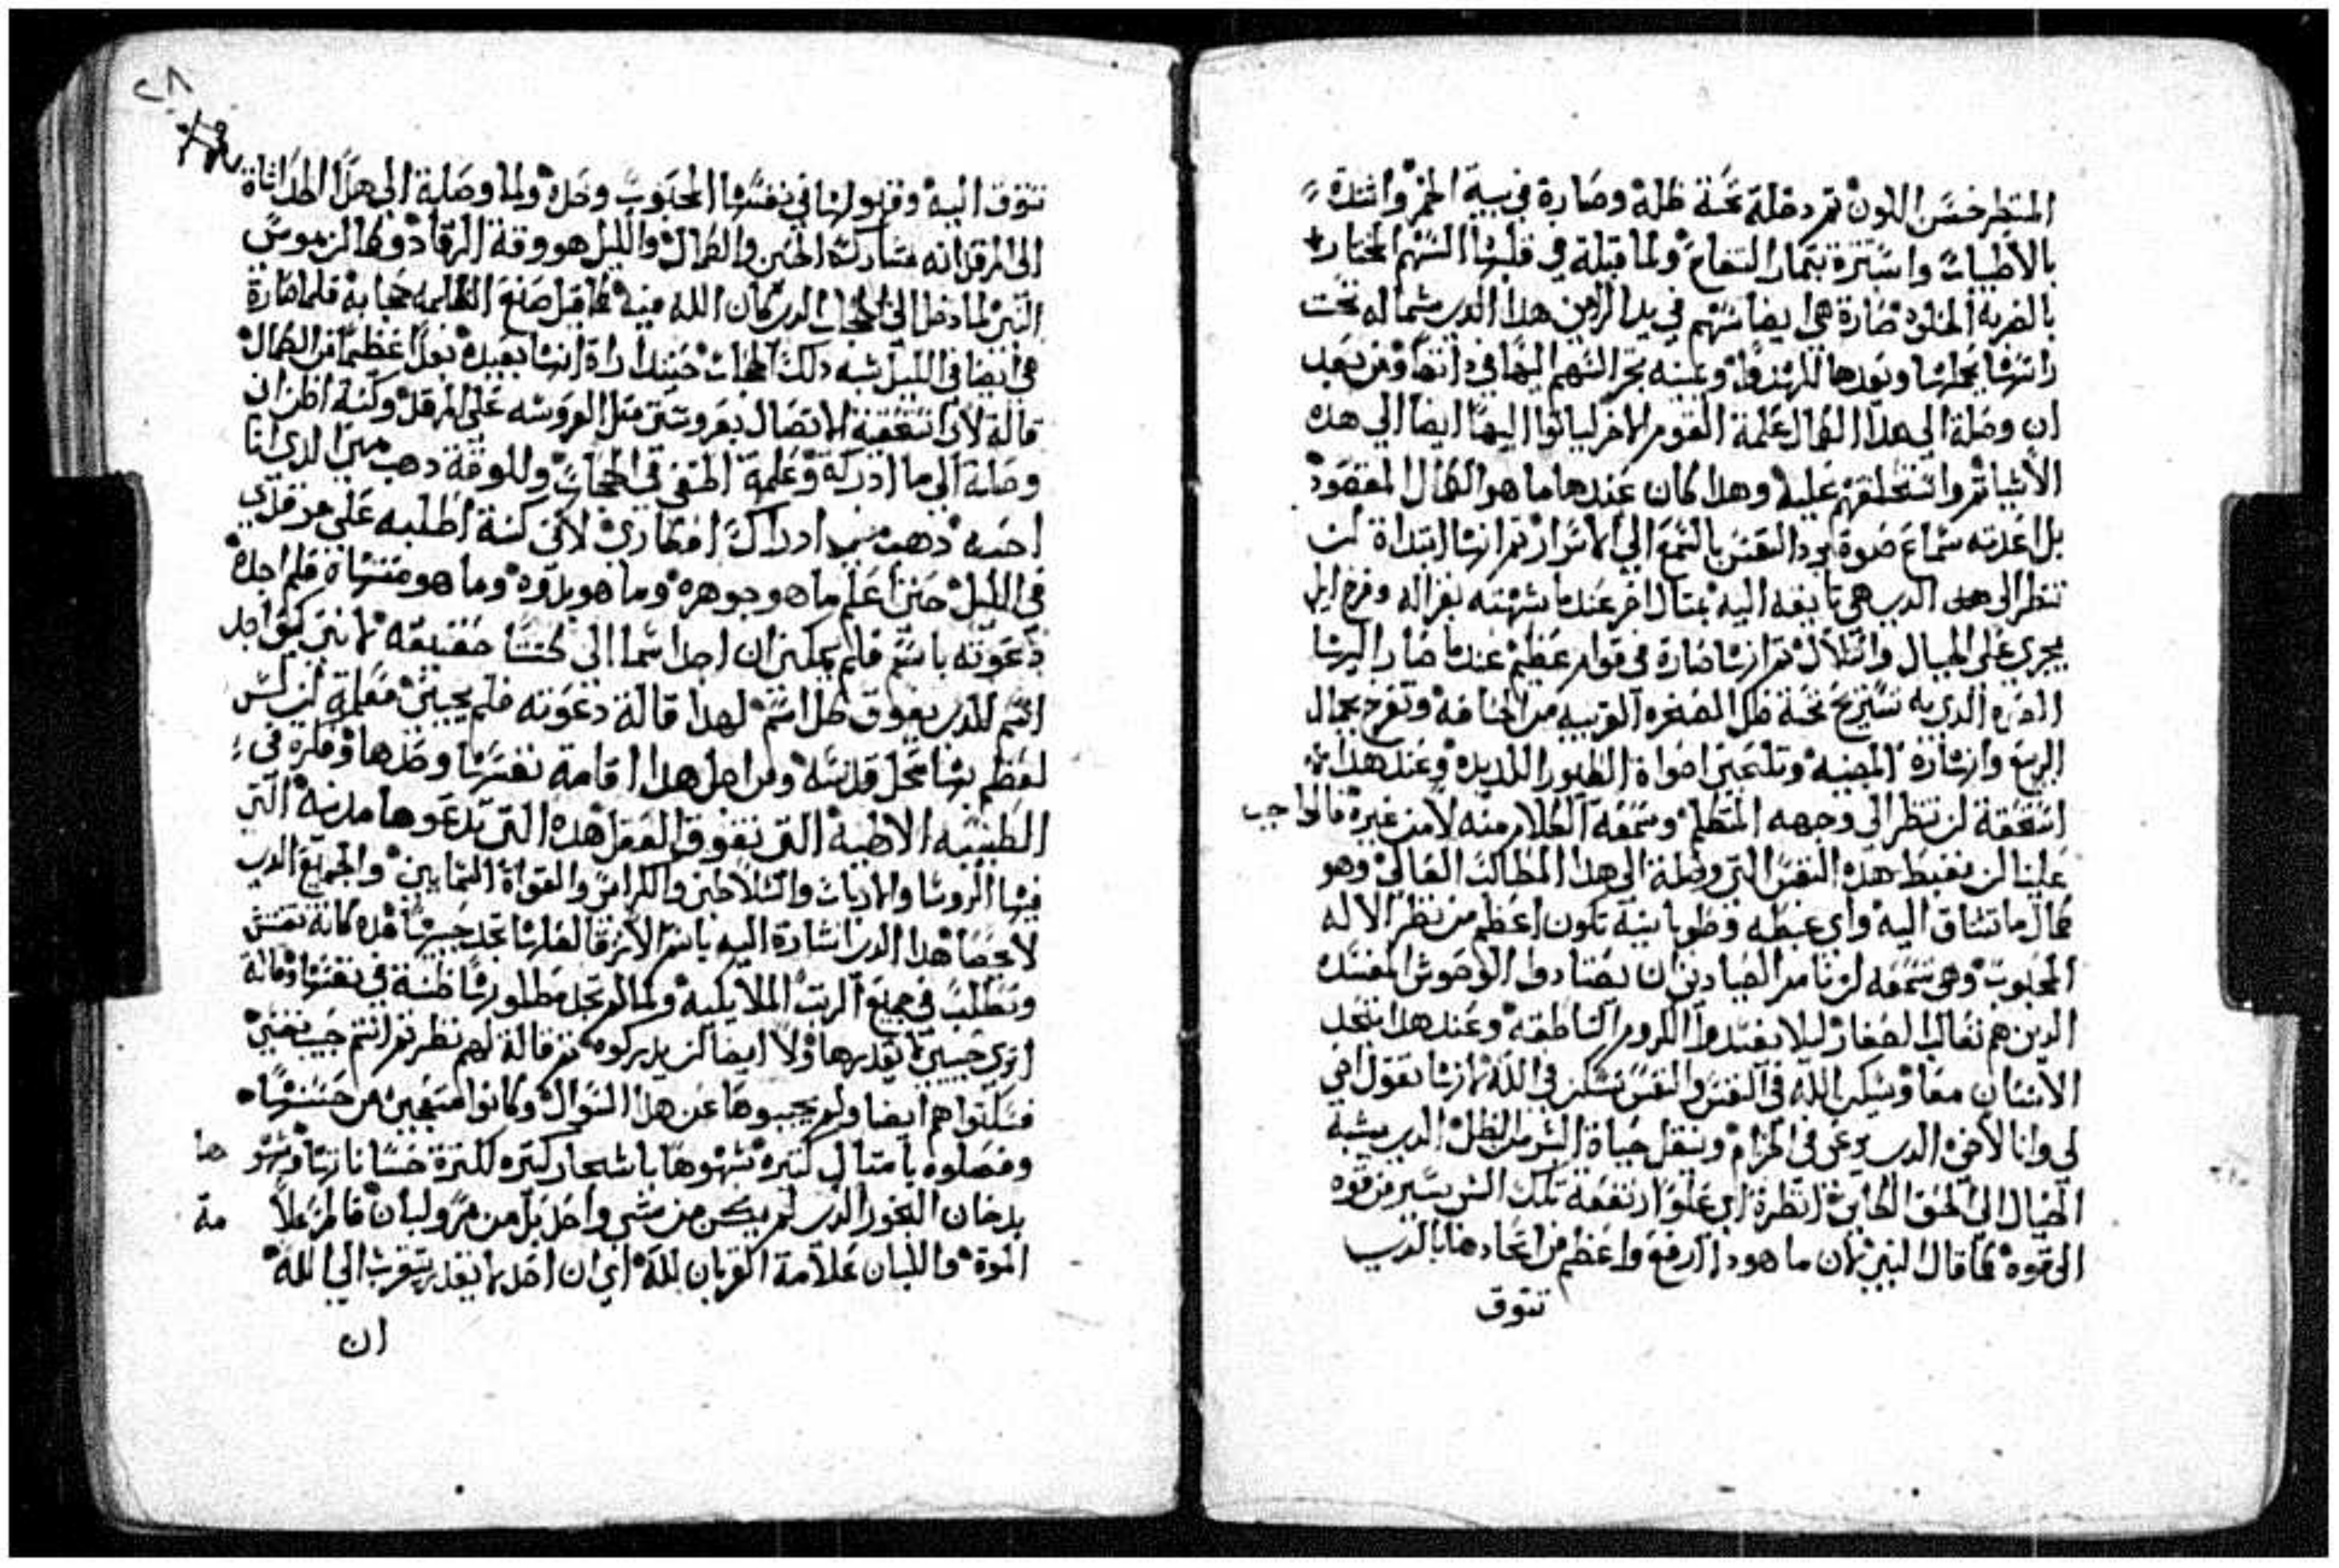 المنظر حسن اللون ثم دخلة تحتة ظله وصارة في بيت الخمر واتلدة
بالاطياب واستترة بتمار التفاح ولما قبلة في قلبها السهم المختار
بالضربه الحلوه صارة هي ايضا سهم في يد الرامي هذا الدي شماله تحت
راسها يحملها ويعدها للهدف ويمينه يجر السهم اليها في داتها ومن بعد
ان وصلة الي هدا الكمال علمة القوم الاخر لياتوا اليها ايضا الي هده
الاشيا ثم واستحلفتهم عليه وهدا كان عندها ما هو الكمال المقصود
بل اعدته سماع صوة يرد النفس بالسمع الي الاسرار ثم انها ابتداة لن
تنظر الي هدا الدي هي تايقه اليه بمتال اخر عندما شبهته بغزاله وفرخ ايل
يجري علي الجبال والتلال ثم انها صارة في قوام عظيم عندما صار اليها
الصوة الدي به تستريح تحتة ظل الصخره القريبه من الحافه وتفرح بجمال
الربيع وازهاره المضيه وتلحين اصواة الطيور اللديده وعند هدا
استحقة لن تنظر الي وجهه المتكلم وسمعة الكلام منه لا من غيره فالواجب
علينا لن نغبط هده النفس التي وصلة الي هدا المطالب العاليه وهو
كمال ما تشتاق اليه واي غبطه وطوبانيه تكون اعظم من نظر الاله
المحبوب وهي سمعة لن يامر الصيادين ان يصتادوا الوحوش المفسده
الدين هم تعالب الصغار ليلا يفسدوا الكروم الناطقه وعند هدا يتحد
الاتنان معا ويسكن الله في النفس والنفس تسكن في الله لانها تقول اخي
لي وانا لاخي الدي يرعي في الخزام وينقل حياة البشر من الظل الدي يشبه
الخيال الي الحق الكاين انظرة اي علو ارتفعة تلك التي تسير من قوه
الي قوه كما قال النبي لان ما هودا ارفع واعظم من اتحادها بالدي
تتوق
تتوق اليه وقبولها في نفسها المحبوب وحده ولما وصلة الي هدا الحد اتاة
الي المرقد انه مشاركة الحس والكمال والليل هو وقة الرقاد وكما ان موسي
النبي لما دخل الي الحجاب الدي كان الله فيه كما قيل صنع الظلمه حجابه فلما صارة
هي ايضا في الليل شبه دلك الحجاب حينيدا راة انها بعيده بعدا عظيما من الكمال
قالة لاد استحقية الاتصال بعروسي متل العروسه علي المرقد وكنة اظن ان
وصلة الي ما ادركة وعلمة المخفي في الحجاب وللوقة دهب مني الدي انا
احبه دهب مني ادراك افكاري لاني كنة اطلبه علي مرقدي
في الليل حتي اعلم ما هو جوهره وما هو بدوه وما هو منتهاه فلم اجده
دعوته باسم فلم يمكني ان اجد اسما الي كنتنا حقيقه لانني كيف اجد
اسم للدي يفوق كل اسم لهدا قالة دعوته فلم يجيبني فعلمة لن ليس
لعظم بها محل قدسه ومن اجل هدا اقامة نفسها وحدها وفكرة في
الطبيعه الالهيه التي تفوق العقل هده التي تدعوها مدينه التي
فيها الروسا والاربات والسلاطين والكراسي والقواة السمايين والجميع الدي
لا يحصا هدا الدي اشارة اليه باسم الازقا لعلها تجد حبيبها هده كانة تفتش
وتطلب في جميع الرتب الملايكيه ولما لم تجد مطلوبها ظنة في نفسها وقالة
اتري حبيبي لا يقدرها ولا ايضا لن يدركوه ثم قالة لهم نظرتم انتم حبيب نفسي
فسكتوا هم ايضا ولم يجيبوها عن هدا السوال وكانوا متعجبين من حسنها
وفصلوه بامتال كتيره شبهوها باشجار كتيره لكترة حسانا زها وشبهوها
بدخان البخور الدي لم يكن من شي واحد بل من مر ولبان فالمر علامة
الموة واللبان علامة القربان لله اي ان احد لا يقدر يتقرب الي الله
ان